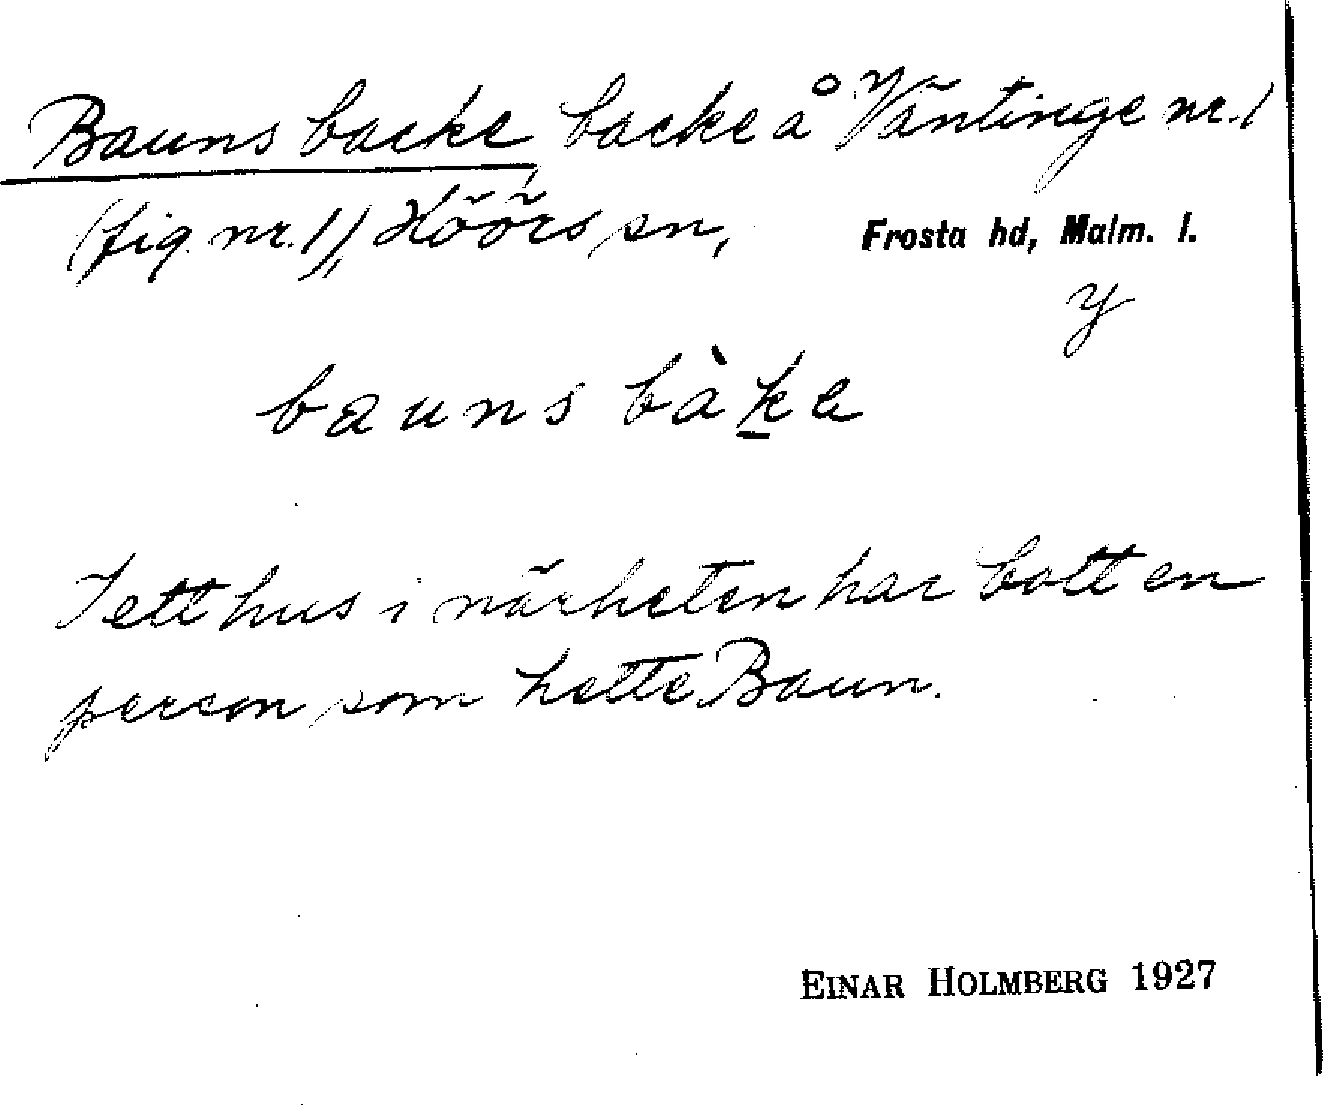 Bauns backe, backe å Väntinge nr. 1
(fig. nr. 1), Höörs sn, Frosta hd, Malm. l.
y
bauns bàke
I ett hus i närheten har bott en
person som hette Baun.
EINAR HOLMBERG 1927